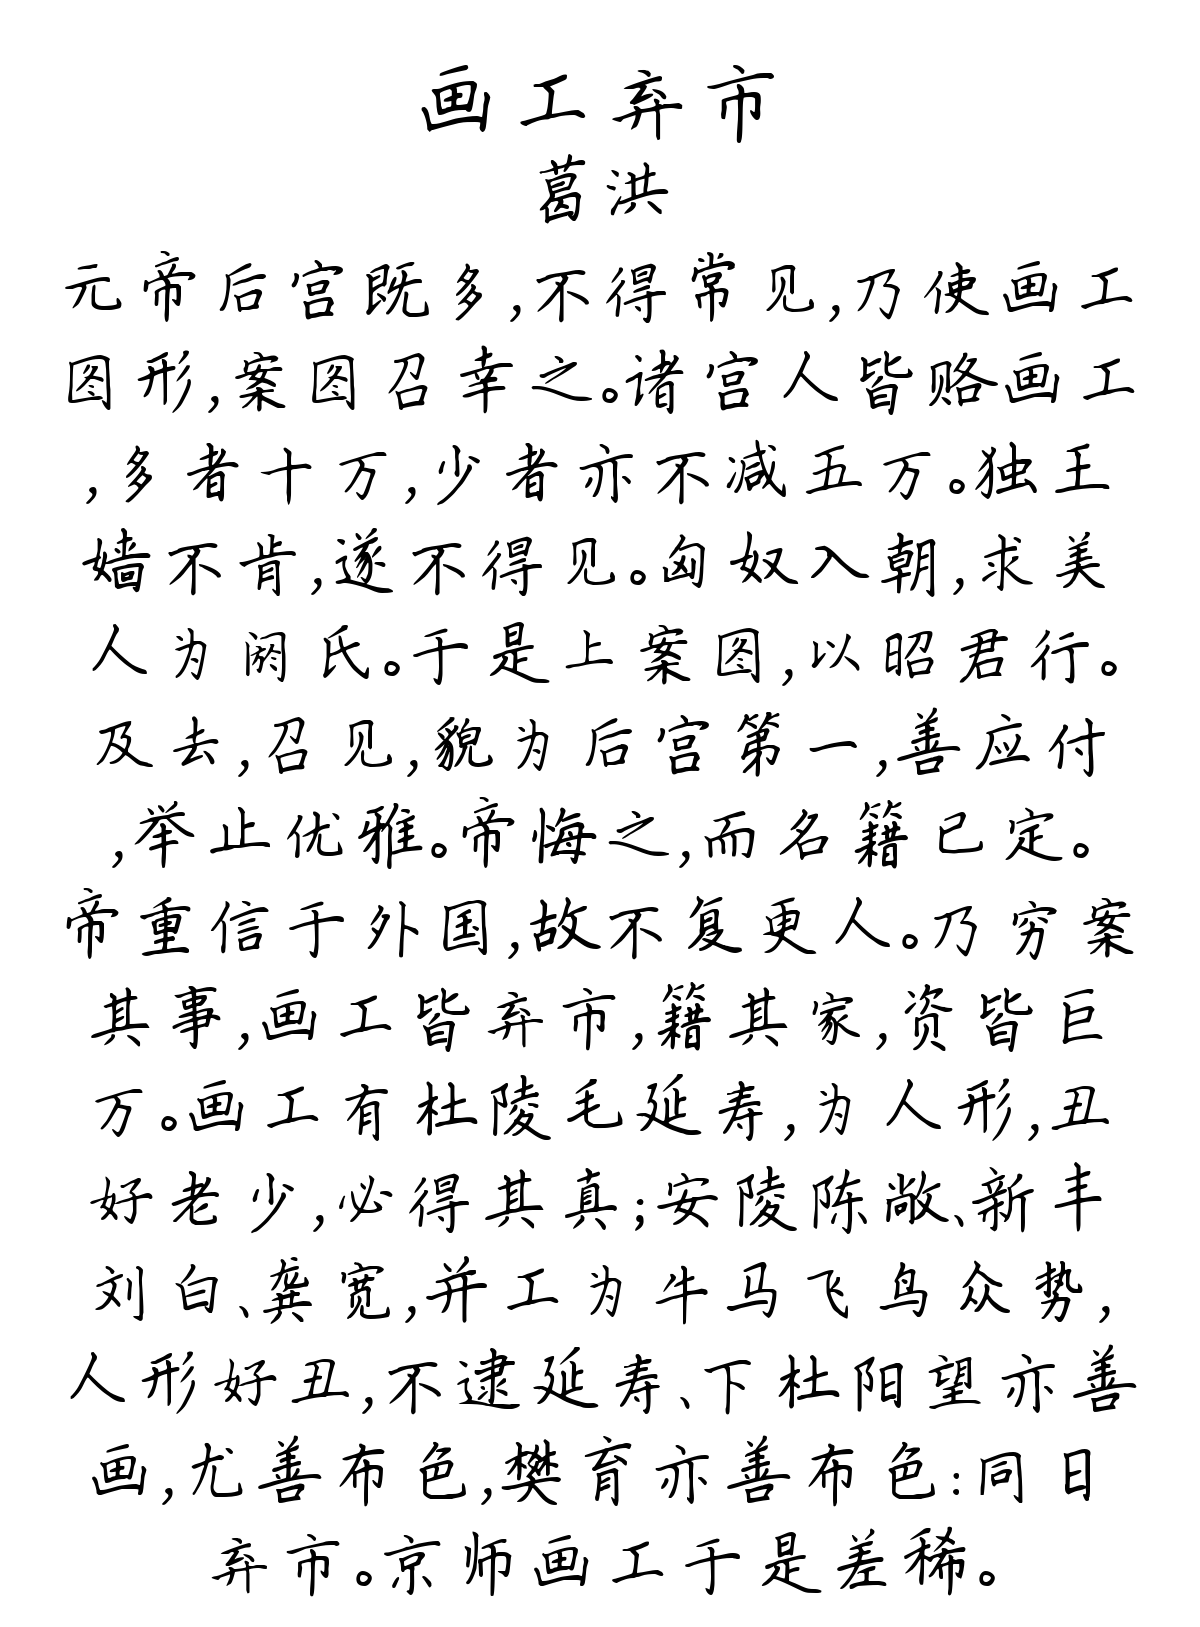 画工弃市
葛洪
元帝后宫既多,不得常见,乃使画工
图形,案图召幸之。诸宫人皆赂画工
,多者十万,少者亦不减五万。独王
嫱不肯,遂不得见。匈奴入朝,求美
人为阏氏。于是上案图,以昭君行。
及去,召见,貌为后宫第一,善应付
,举止优雅。帝悔之,而名籍已定。
帝重信于外国,故不复更人。乃穷案
其事,画工皆弃市,籍其家,资皆巨
万。画工有杜陵毛延寿,为人形,丑
好老少,必得其真;安陵陈敞、新丰
刘白、龚宽,并工为牛马飞鸟众势,
人形好丑,不逮延寿、下杜阳望亦善
画,尤善布色,樊育亦善布色:同日
弃市。京师画工于是差稀。